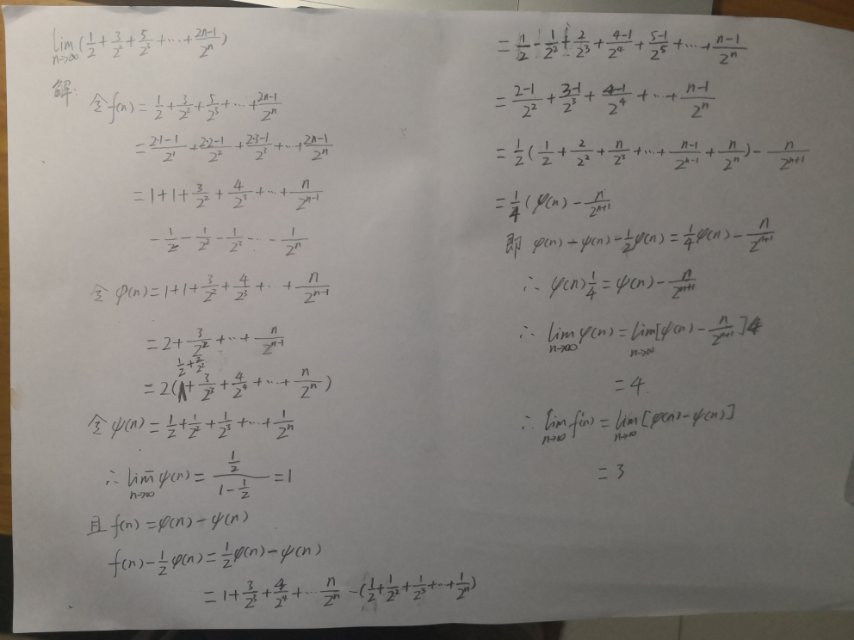 lim_{n→∞} (1/2 + 3/2² + 5/2³ + ··· + (2n-1)/2ⁿ)
解:
令 f(n) = 1/2 + 3/2² + 5/2³ + ··· + (2n-1)/2ⁿ
= (2·1-1)/2¹ + (2·2-1)/2² + (2·3-1)/2³ + ··· + (2n-1)/2ⁿ
= 1 + 1 + 3/2² + 4/2³ + ··· + n/2ⁿ⁻¹
- 1/2 - 1/2² - 1/2³ - ··· - 1/2ⁿ
令 φ(n) = 1 + 1 + 3/2² + 4/2³ + ··· + n/2ⁿ⁻¹
= 2 + 3/2² + ··· + n/2ⁿ⁻¹
= 2(1/2 + 2/2² + 3/2³ + 4/2⁴ + ··· + n/2ⁿ)
令 ψ(n) = 1/2 + 1/2² + 1/2³ + ··· + 1/2ⁿ
∴ lim_{n→∞} ψ(n) = (1/2)/(1 - 1/2) = 1
且 f(n) = φ(n) - ψ(n)
f(n) - 1/2 φ(n) = 1/2 φ(n) - ψ(n)
= 1 + 3/2³ + 4/2⁴ + ··· n/2ⁿ - (1/2 + 1/2² + 1/2³ + ··· + 1/2ⁿ)
= 1/2 - 1/2² + 2/2³ + (4-1)/2⁴ + (5-1)/2⁵ + ··· + (n-1)/2ⁿ
= (2-1)/2² + (3-1)/2³ + (4-1)/2⁴ + ··· + (n-1)/2ⁿ
= 1/2 (1/2 + 2/2² + n/2³ + ··· + (n-1)/2ⁿ⁻¹ + n/2ⁿ) - n/2ⁿ⁺¹
= 1/4 (φ(n) - n/2ⁿ⁺¹
即 φ(n) - ψ(n) - 1/2 φ(n) = 1/4 φ(n) - n/2ⁿ⁺¹
∴ φ(n) 1/4 = ψ(n) - n/2ⁿ⁺¹
∴ lim_{n→∞} φ(n) = lim_{n→∞} [ψ(n) - n/2ⁿ⁺¹] 4
= 4
∴ lim_{n→∞} f(n) = lim_{n→∞} [φ(n) - ψ(n)]
= 3